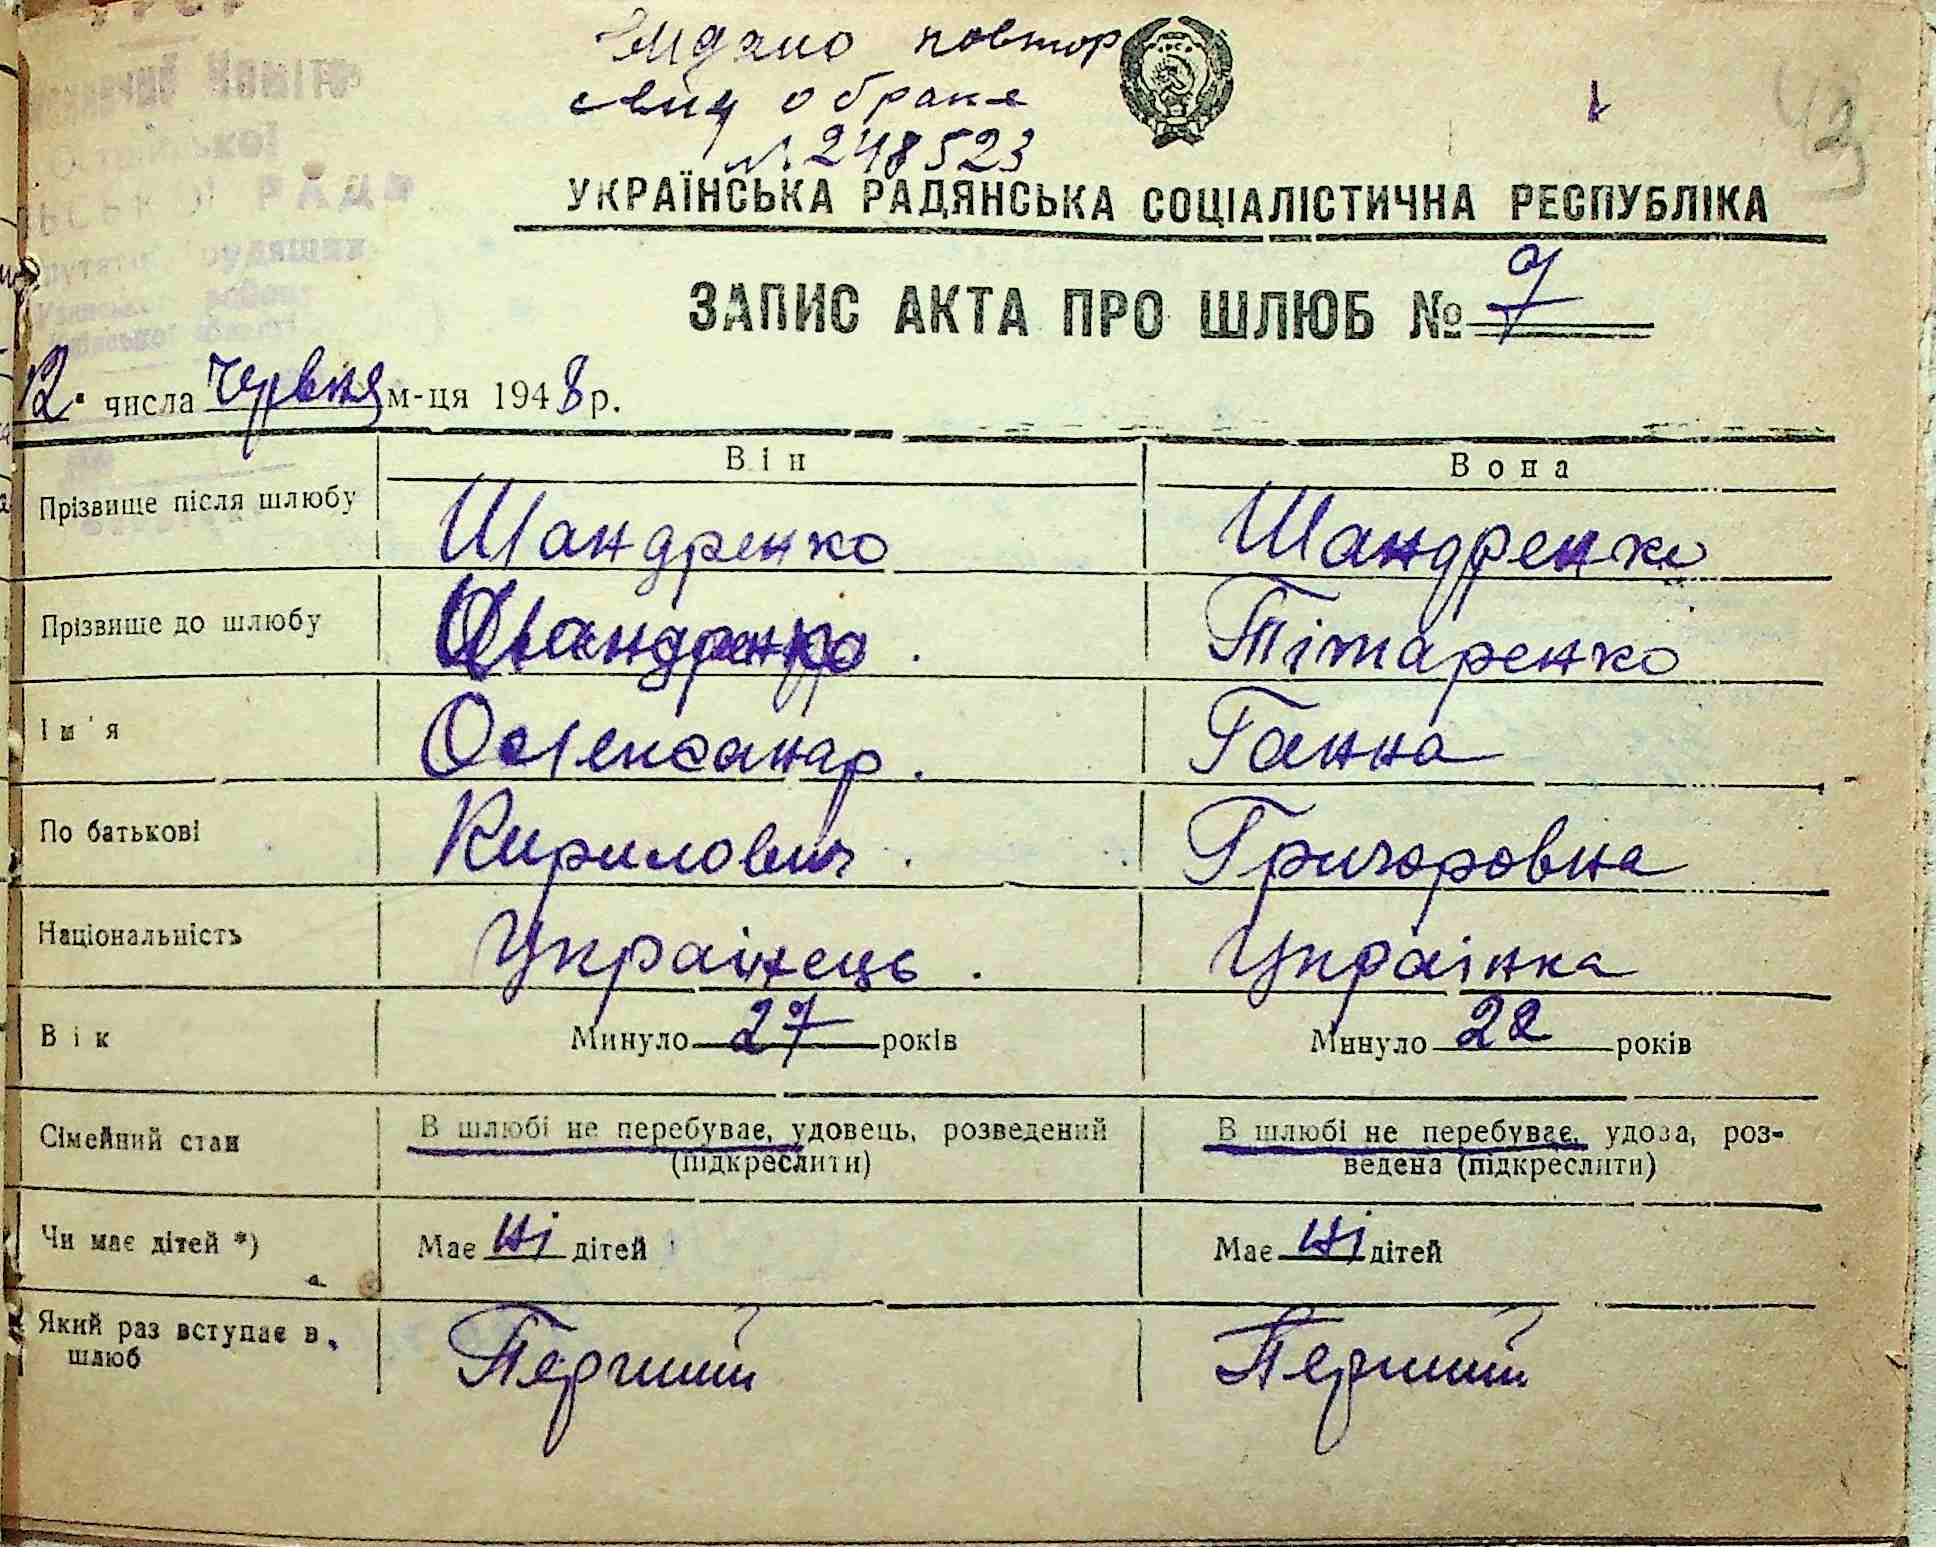 Видано повтор
свид о браке
№ 248523
43
УКРАЇНСЬКА РАДЯНСЬКА СОЦІАЛІСТИЧНА РЕСПУБЛІКА
ЗАПИС АКТА ПРО ШЛЮБ № 7
12. числа червня м-ця 1948 р.
Він Вона
Прізвище після шлюбу Шандренко Шандренко
Прізвище до шлюбу Шандренко. Тітаренко
Ім'я Олександр. Ганна
По батькові Кирилович. Григоровна
Національність Українець. Українка
Вік Минуло 27 років Минуло 22 років
Сімейний стан В шлюбі не перебуває, удовець, розведений В шлюбі не перебуває, удова, роз-
(підкреслити) ведена (підкреслити)
Чи має дітей *) Має ні дітей Має ні дітей
Який раз вступає в Перший Перший
шлюб